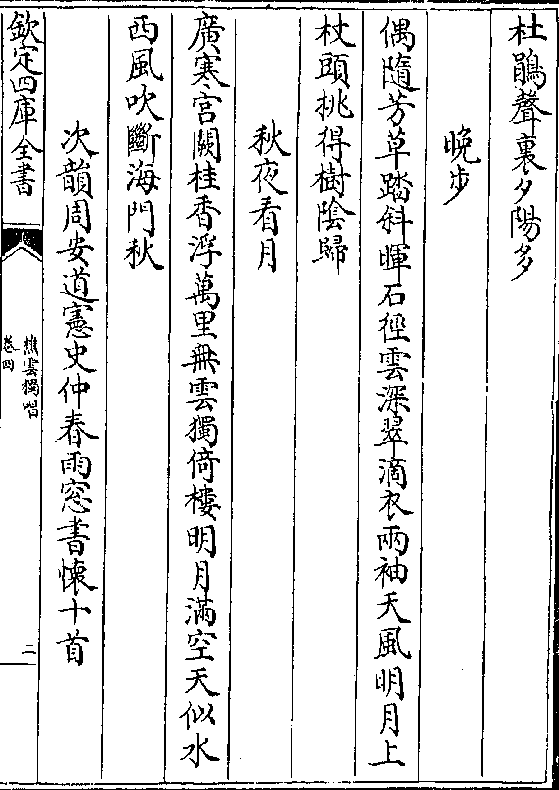 杜鵑聲裏夕陽多
晚步
偶隨芳草踏斜暉石徑雲深翠滴衣兩袖天風明月上
杖頭挑得樹陰歸
秋夜看月
廣寒宮闕桂香浮萬里無雲獨倚樓明月滿空天似水
西風吹斷海門秋
次韻周安道憲史仲春雨窓書懷十首
欽定四庫全書
樵雲獨唱
卷四
二